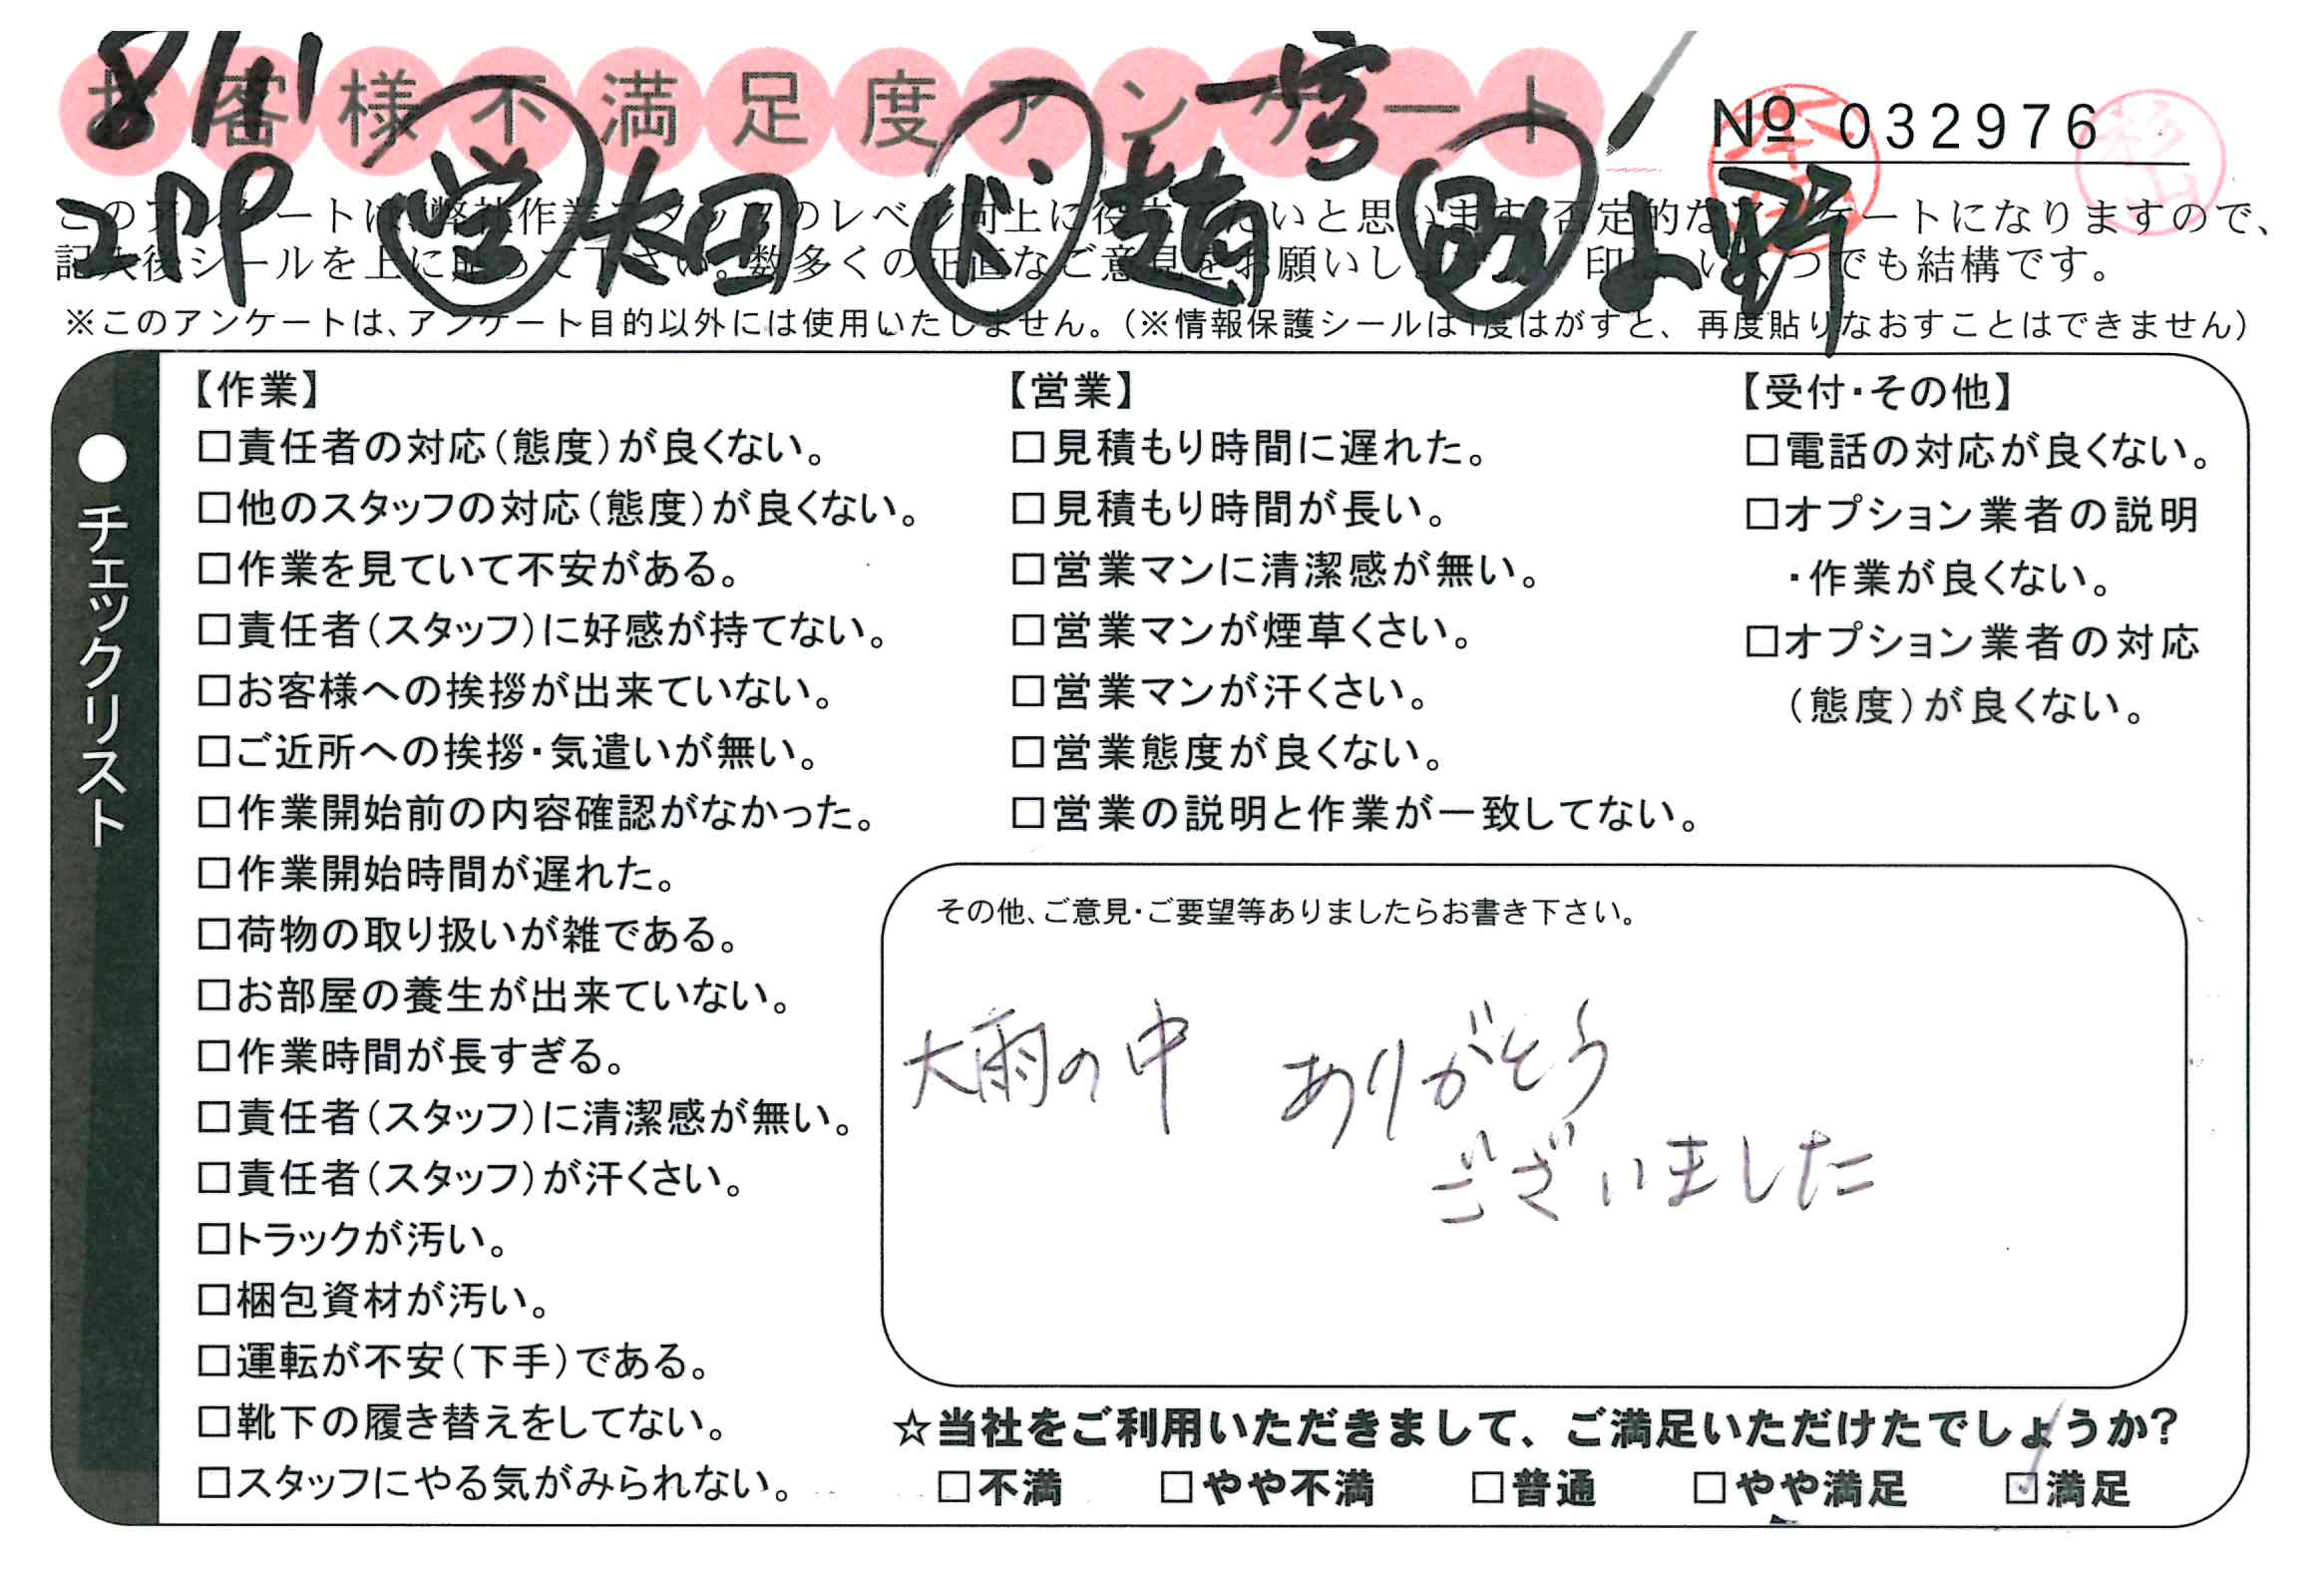 8/11
お客様不満足度アンケート
№ 032976
2PP 営 太田 趙 助 上野
このアンケートは、弊社作業スタッフのレベル向上に役立てたいと思います。否定的なアンケートになりますので、
記入後シールを上に貼って下さい。数多くの正直なご意見をお願いします。 印はいくつでも結構です。
※このアンケートは、アンケート目的以外には使用いたしません。(※情報保護シールは1度はがすと、再度貼りなおすことはできません)
●チェックリスト
【作業】
□責任者の対応(態度)が良くない。
□他のスタッフの対応(態度)が良くない。
□作業を見ていて不安がある。
□責任者(スタッフ)に好感が持てない。
□お客様への挨拶が出来ていない。
□ご近所への挨拶・気遣いが無い。
□作業開始前の内容確認がなかった。
□作業開始時間が遅れた。
□荷物の取り扱いが雑である。
□お部屋の養生が出来ていない。
□作業時間が長すぎる。
□責任者(スタッフ)に清潔感が無い。
□責任者(スタッフ)が汗くさい。
□トラックが汚い。
□梱包資材が汚い。
□運転が不安(下手)である。
□靴下の履き替えをしてない。
□スタッフにやる気がみられない。
【営業】
□見積もり時間に遅れた。
□見積もり時間が長い。
□営業マンに清潔感が無い。
□営業マンが煙草くさい。
□営業マンが汗くさい。
□営業態度が良くない。
□営業の説明と作業が一致してない。
【受付・その他】
□電話の対応が良くない。
□オプション業者の説明
・作業が良くない。
□オプション業者の対応
(態度)が良くない。
その他、ご意見・ご要望等ありましたらお書き下さい。
大雨の中 ありがとう
ございました
☆当社をご利用いただきまして、ご満足いただけたでしょうか?
□不満 □やや不満 □普通 □やや満足 ☑満足